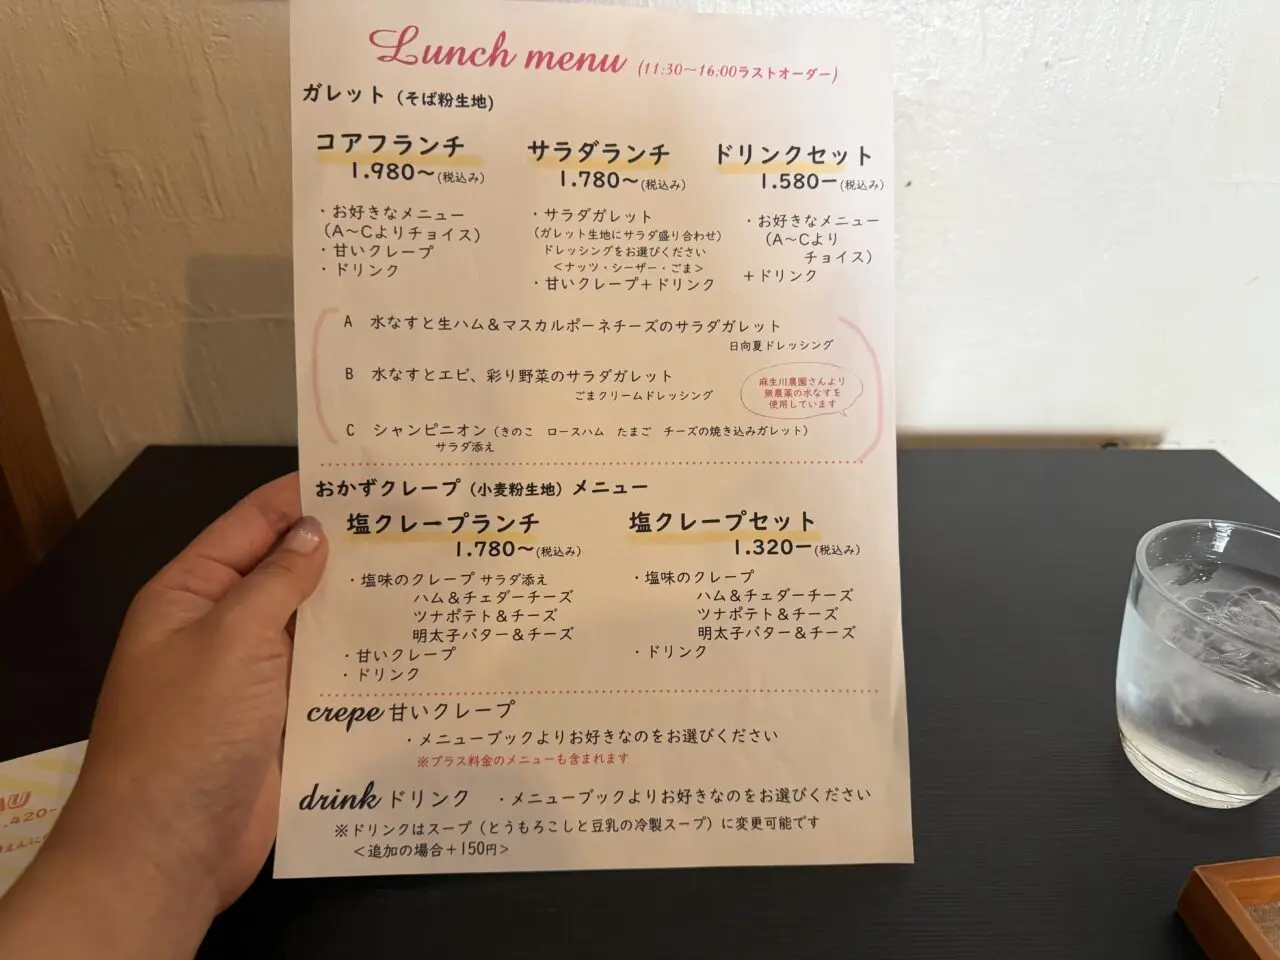 Lunch menu (11:30～16:00ラストオーダー)
ガレット（そば粉生地)
コアフランチ
1.980～(税込み)
・お好きなメニュー
（A～Cよりチョイス）
・甘いクレープ
・ドリンク
サラダランチ
1.780～(税込み)
・サラダガレット
（ガレット生地にサラダ盛り合わせ）
ドレッシングをお選びください
＜ナッツ・シーザー・ごま＞
・甘いクレープ＋ドリンク
ドリンクセット
1.580ー(税込み)
・お好きなメニュー
（A～Cより
チョイス）
＋ドリンク
A 水なすと生ハム＆マスカルポーネチーズのサラダガレット
日向夏ドレッシング
B 水なすとエビ、彩り野菜のサラダガレット
ごまクリームドレッシング
麻生川農園さんより
無農薬の水なすを
使用しています
C シャンピニオン（きのこ ロースハム たまご チーズの焼き込みガレット）
サラダ添え
おかずクレープ（小麦粉生地）メニュー
塩クレープランチ
1.780～(税込み)
・塩味のクレープ サラダ添え
ハム＆チェダーチーズ
ツナポテト＆チーズ
明太子バター＆チーズ
・甘いクレープ
・ドリンク
塩クレープセット
1.320ー(税込み)
・塩味のクレープ
ハム＆チェダーチーズ
ツナポテト＆チーズ
明太子バター＆チーズ
・ドリンク
crepe 甘いクレープ
・メニューブックよりお好きなのをお選びください
※プラス料金のメニューも含まれます
drink ドリンク ・メニューブックよりお好きなのをお選びください
※ドリンクはスープ（とうもろこしと豆乳の冷製スープ）に変更可能です
＜追加の場合＋150円＞